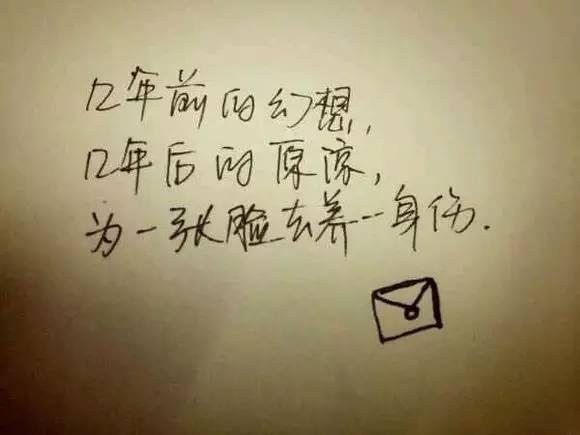 几年前的幻想,
几年后的原谅,
为一张脸去养一身伤.